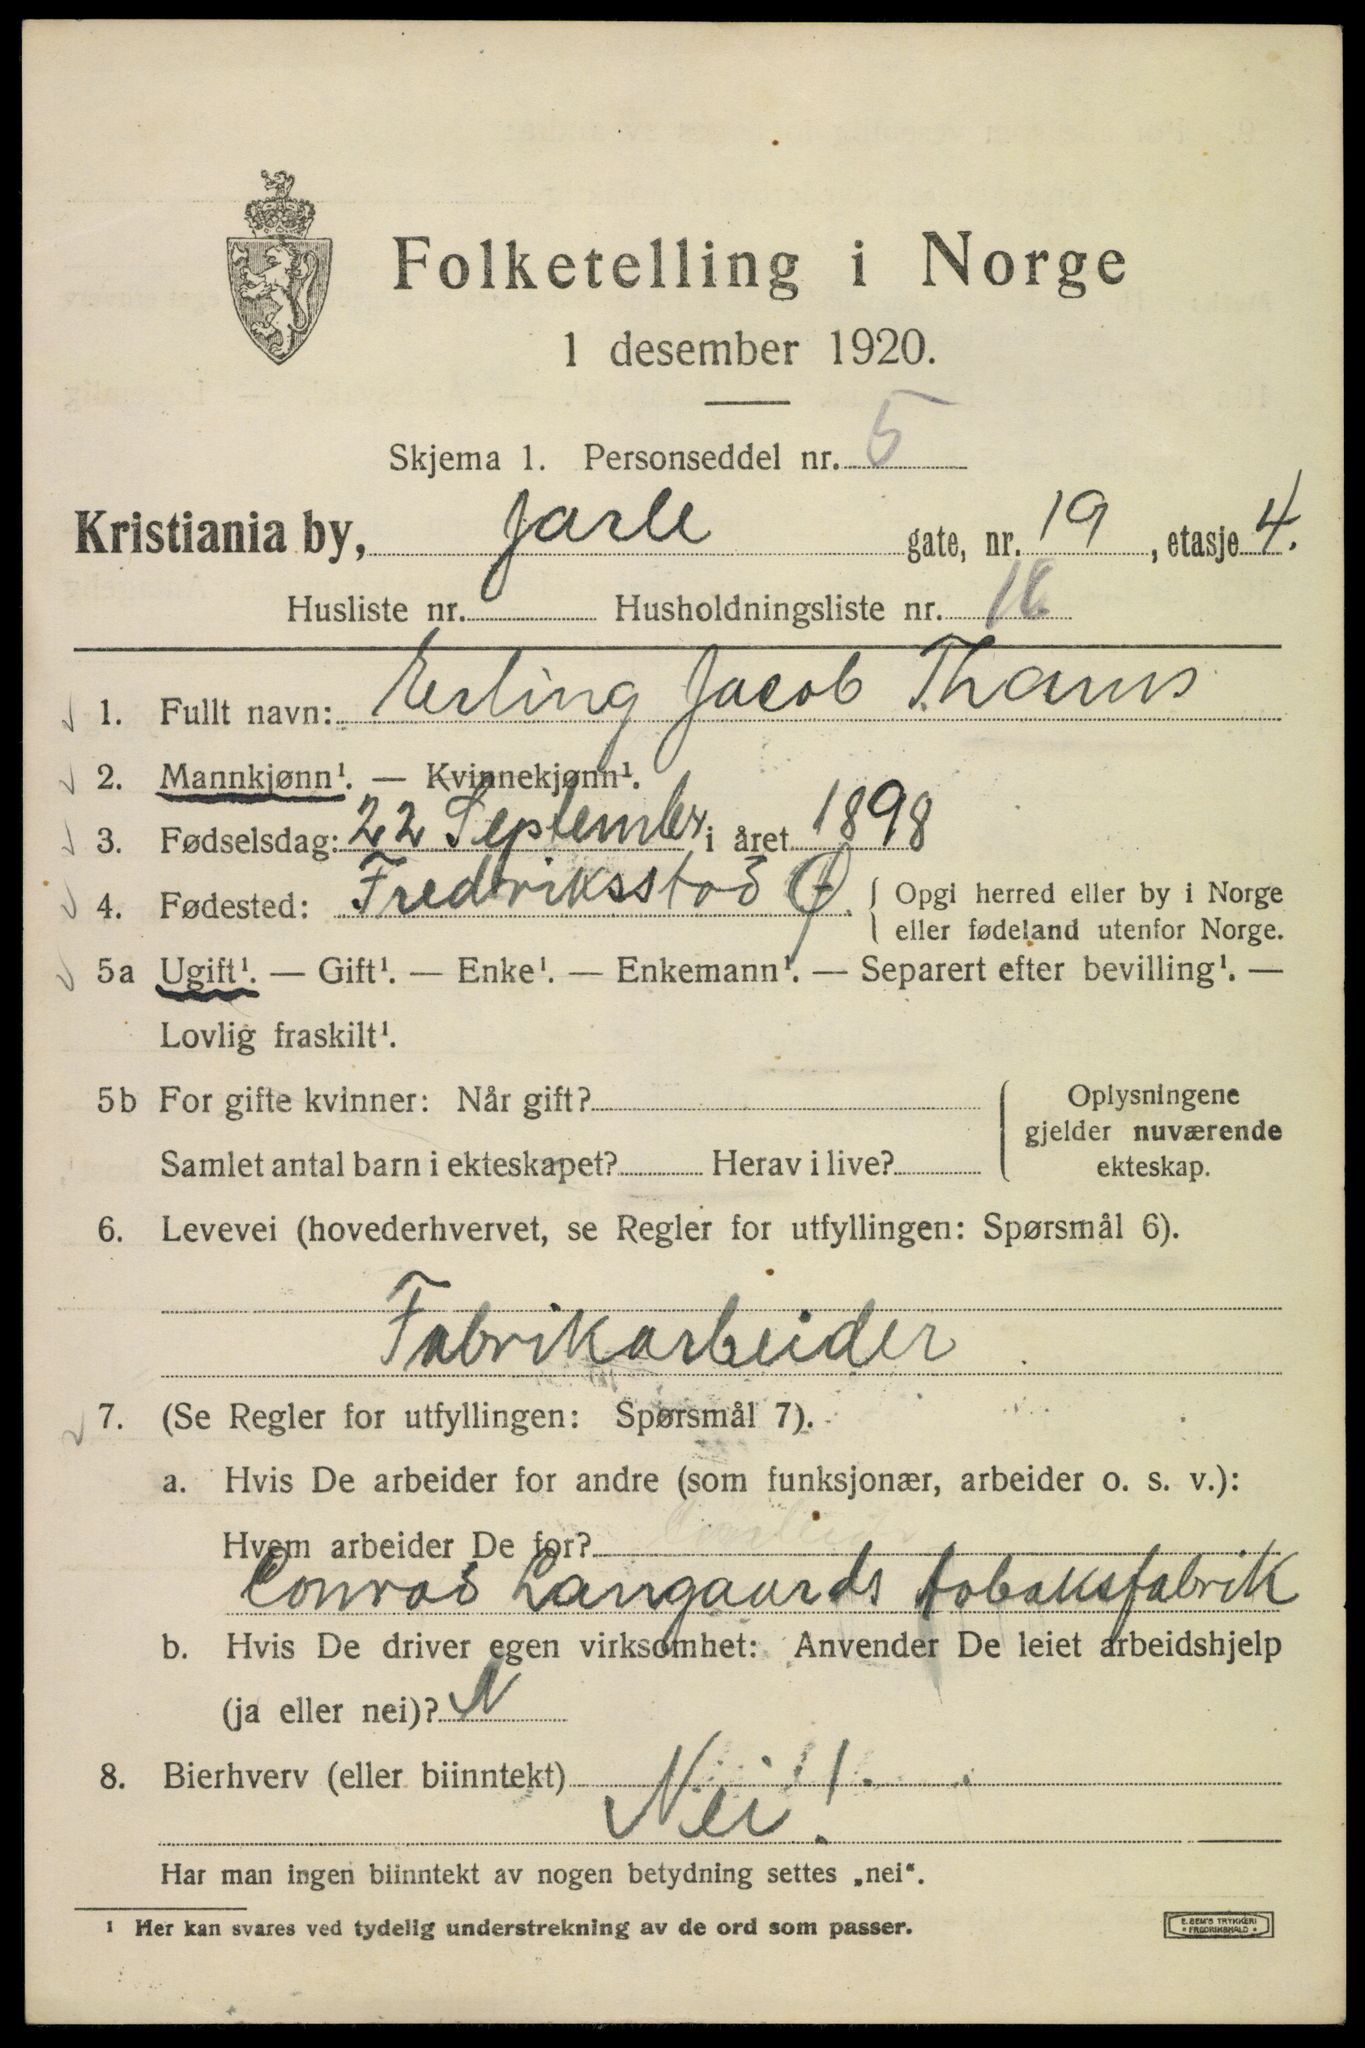 Folketelling i Norge
1 desember 1920.
Skjema 1. Personseddel nr. 5
Kristiania by, Jarle gate, nr. 19, etasje 4.
Husliste nr. Husholdningsliste nr.
1. Fullt navn: Erling Jacob Thams
2. Mannkjønn¹. — Kvinnekjønn¹.
3. Fødselsdag: 22 Septembr i året 1898
4. Fødested: Fredriksstad Ø. Opgi herred eller by i Norge
eller fødeland utenfor Norge.
5a Ugift¹. — Gift¹. — Enke¹. — Enkemann¹. — Separert efter bevilling¹. —
Lovlig fraskilt¹.
5b For gifte kvinner: Når gift? Oplysningene
gjelder nuværende
Samlet antal barn i ekteskapet? Herav i live? ekteskap.
6. Levevei (hovederhvervet, se Regler for utfyllingen: Spørsmål 6).
Fabrikarbeider
7. (Se Regler for utfyllingen: Spørsmål 7).
a. Hvis De arbeider for andre (som funksjonær, arbeider o. s. v.):
Hvem arbeider De for?
Conrad Langaards tobaksfabrik
b. Hvis De driver egen virksomhet: Anvender De leiet arbeidshjelp
(ja eller nei)? N
8. Bierhverv (eller biinntekt)
Nei!
Har man ingen biinntekt av nogen betydning settes „nei“.
¹ Her kan svares ved tydelig understrekning av de ord som passer.
E. SEM'S TRYKKERI
• FREDRIKSHALD •